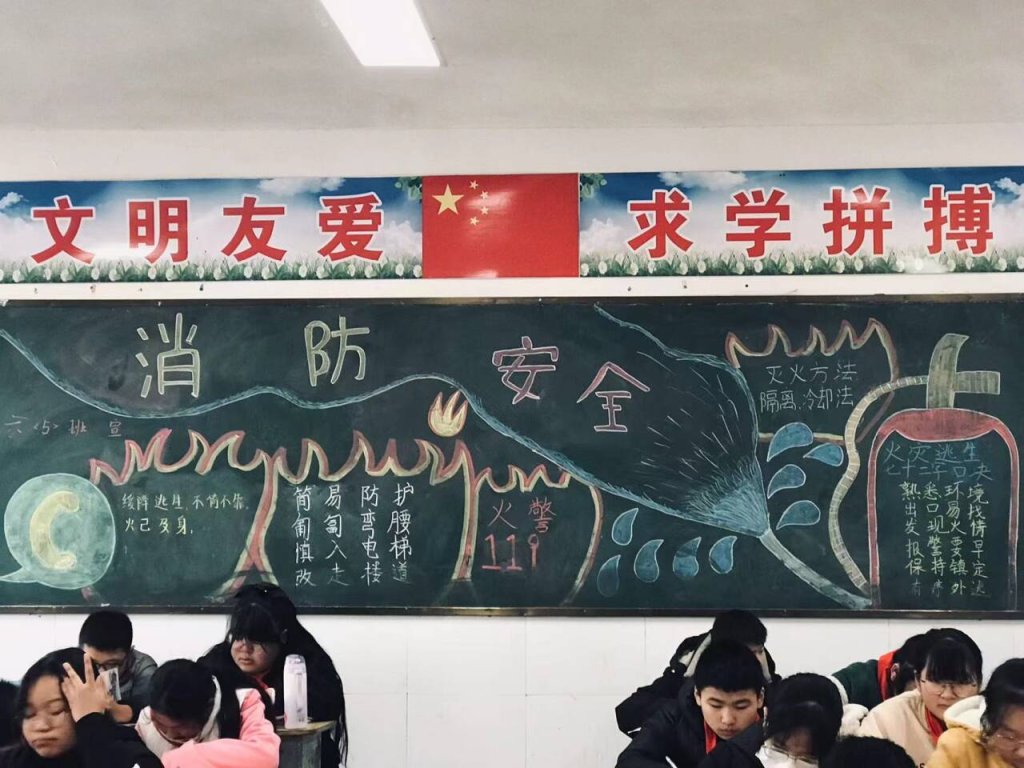 文明友爱
求学拼搏
消防安全
六〈5〉班 宣
缓降逃生,不等不靠,
火已及身,
简易防护
匍匐弯腰
慎入电梯
改走楼道
火警
119
灭火方法
隔离.冷却法
火灾逃生
七十二字口夫
熟悉环境
出口易找
发现火情
报警要早
保持镇定